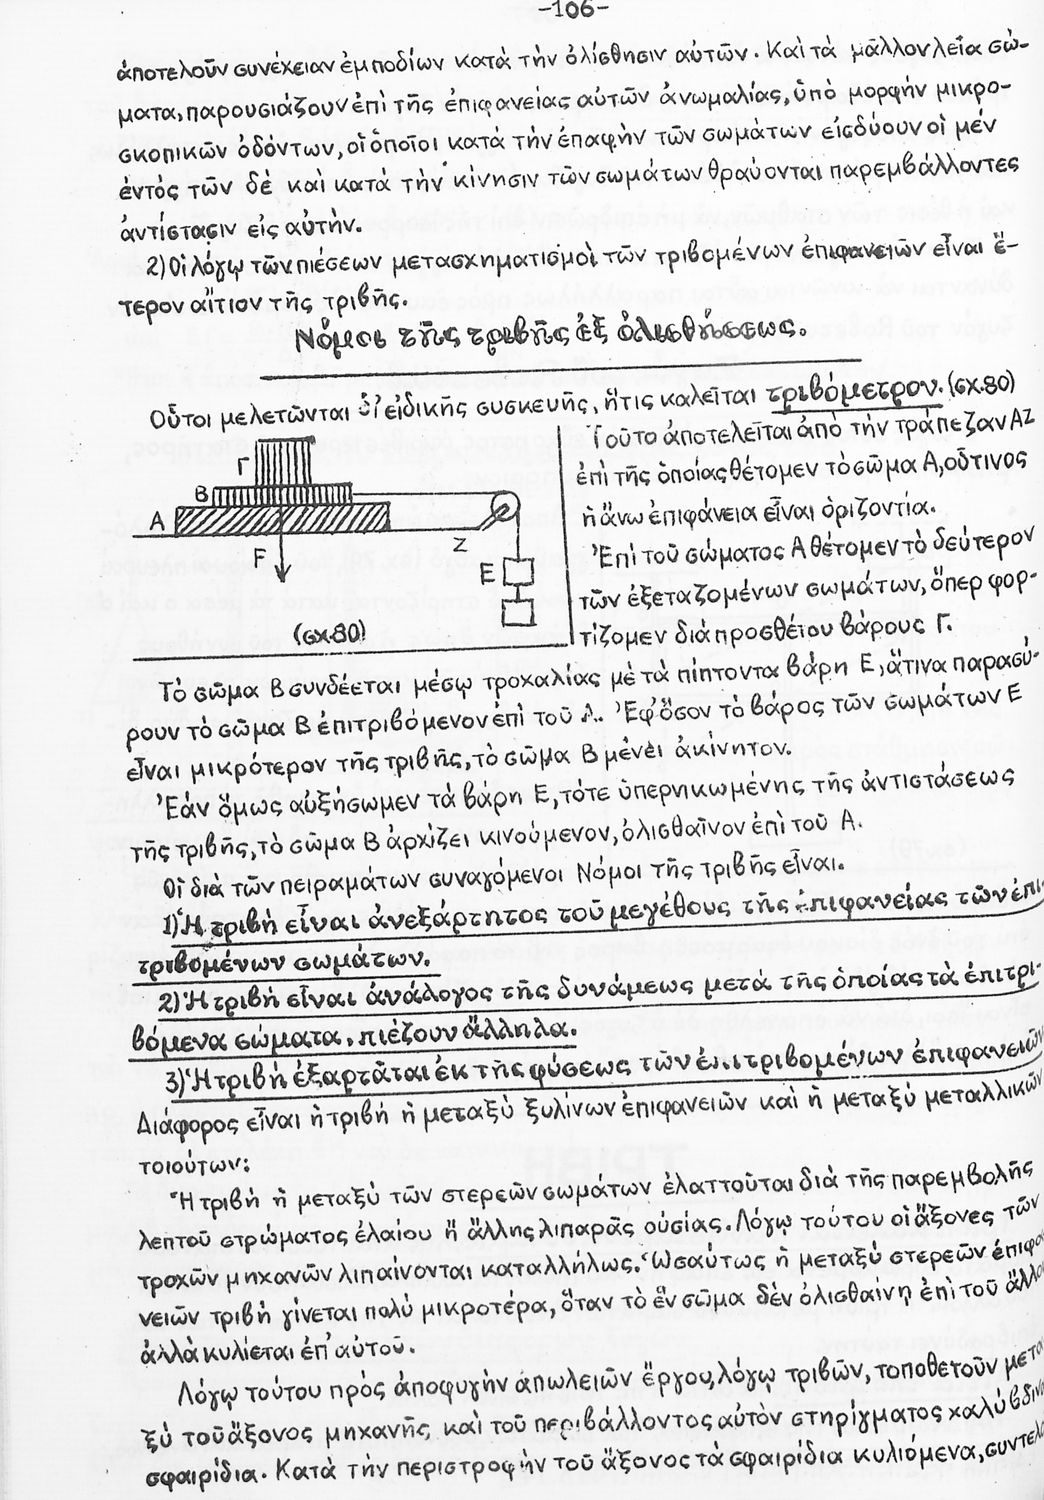 -106-
ἀποτελοῦν συνέχειαν ἐμποδίων κατὰ τὴν ὀλίσθησιν αὐτῶν. Καὶ τὰ μᾶλλον λεῖα σώ-
ματα, παρουσιάζουν ἐπὶ τῆς ἐπιφανείας αὐτῶν ἀνωμαλίας, ὑπὸ μορφὴν μικρο-
σκοπικῶν ὀδόντων, οἱ ὁποῖοι κατὰ τὴν ἐπαφὴν τῶν σωμάτων εἰσδύουν οἱ μέν
ἐντός τῶν δὲ καὶ κατὰ τὴν κίνησιν τῶν σωμάτων θραύονται παρεμβάλλοντες
ἀντίστασιν εἰς αὐτήν.
2) Οἱ λόγῳ τῶν πιέσεων μετασχηματισμοὶ τῶν τριβομένων ἐπιφανειῶν εἶναι ἕ-
τερον αἴτιον τῆς τριβῆς.
Νόμοι τῆς τριβῆς ἐξ ὀλισθήσεως.
Οὗτοι μελετῶνται δι' εἰδικῆς συσκευῆς, ἥτις καλεῖται τριβόμετρον. (σχ.80)
Τοῦτο ἀποτελεῖται ἀπὸ τὴν τράπεζαν ΑΖ
ἐπὶ τῆς ὁποίας θέτομεν τὸ σῶμα Α, οὗτινος
ἡ ἄνω ἐπιφάνεια εἶναι ὁριζοντία.
Ἐπὶ τοῦ σώματος Α θέτομεν τὸ δεύτερον
τῶν ἐξεταζομένων σωμάτων, ὅπερ φορ-
τίζομεν διὰ προσθέτου βάρους Γ.
Γ
Β
Α
F
Ζ
Ε
(σχ.80)
Τὸ σῶμα Β συνδέεται μέσῳ τροχαλίας μὲ τὰ πίπτοντα βάρη Ε, ἅτινα παρασύ-
ρουν τὸ σῶμα Β ἐπιτριβόμενον ἐπὶ τοῦ Α. Ἐφ' ὅσον τὸ βάρος τῶν σωμάτων Ε
εἶναι μικρότερον τῆς τριβῆς, τὸ σῶμα Β μένει ἀκίνητον.
Ἐάν ὅμως αὐξήσωμεν τὰ βάρη Ε, τότε ὑπερνικωμένης τῆς ἀντιστάσεως
τῆς τριβῆς, τὸ σῶμα Β ἀρχίζει κινούμενον, ὀλισθαῖνον ἐπὶ τοῦ Α.
Οἱ διὰ τῶν πειραμάτων συναγόμενοι Νόμοι τῆς τριβῆς εἶναι.
1) Ἡ τριβὴ εἶναι ἀνεξάρτητος τοῦ μεγέθους τῆς ἐπιφανείας τῶν ἐπι-
τριβομένων σωμάτων.
2) Ἡ τριβὴ εἶναι ἀνάλογος τῆς δυνάμεως μετὰ τῆς ὁποίας τὰ ἐπιτρι-
βόμενα σώματα, πιέζουν ἄλληλα.
3) Ἡ τριβὴ ἐξαρτᾶται ἐκ τῆς φύσεως τῶν ἐπιτριβομένων ἐπιφανειῶν
Διάφορος εἶναι ἡ τριβὴ ἡ μεταξὺ ξυλίνων ἐπιφανειῶν καὶ ἡ μεταξὺ μεταλλικῶν
τοιούτων:
Ἡ τριβὴ ἡ μεταξὺ τῶν στερεῶν σωμάτων ἐλαττοῦται διὰ τῆς παρεμβολῆς
λεπτοῦ στρώματος ἐλαίου ἢ ἄλλης λιπαρᾶς οὐσίας. Λόγῳ τούτου οἱ ἄξονες τῶν
τροχῶν μηχανῶν λιπαίνονται καταλλήλως. Ὡσαύτως ἡ μεταξὺ στερεῶν ἐπιφα
νειῶν τριβὴ γίνεται πολὺ μικροτέρα, ὅταν τὸ ἓν σῶμα δὲν ὀλισθαίνῃ ἐπὶ τοῦ ἄλλου
ἀλλὰ κυλίεται ἐπ' αὐτοῦ.
Λόγῳ τούτου πρὸς ἀποφυγὴν ἀπωλειῶν ἔργου, λόγῳ τριβῶν, τοποθετοῦν μετα
ξὺ τοῦ ἄξονος μηχανῆς καὶ τοῦ περιβάλλοντος αὐτὸν στηρίγματος χαλύβδινα
σφαιρίδια. Κατὰ τὴν περιστροφὴν τοῦ ἄξονος τὰ σφαιρίδια κυλιόμενα, συντελ